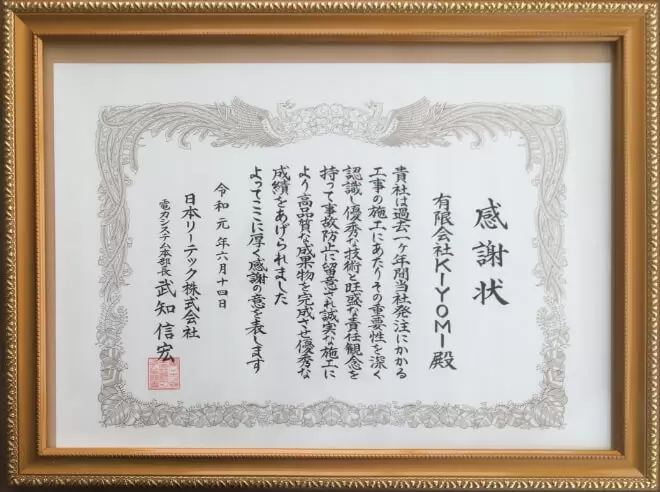 感謝状
有限会社KIYOMI殿
貴社は過去一ヶ年間当社発注にかかる
工事の施工にあたりその重要性を深く
認識し優秀な技術と旺盛な責任観念を
持って事故防止に留意され誠実な施工に
より高品質な成果物を完成させ優秀な
成績をあげられました
よってここに厚く感謝の意を表します
令和元年六月十四日
日本リーテック株式会社
電力システム本部長 武知信宏